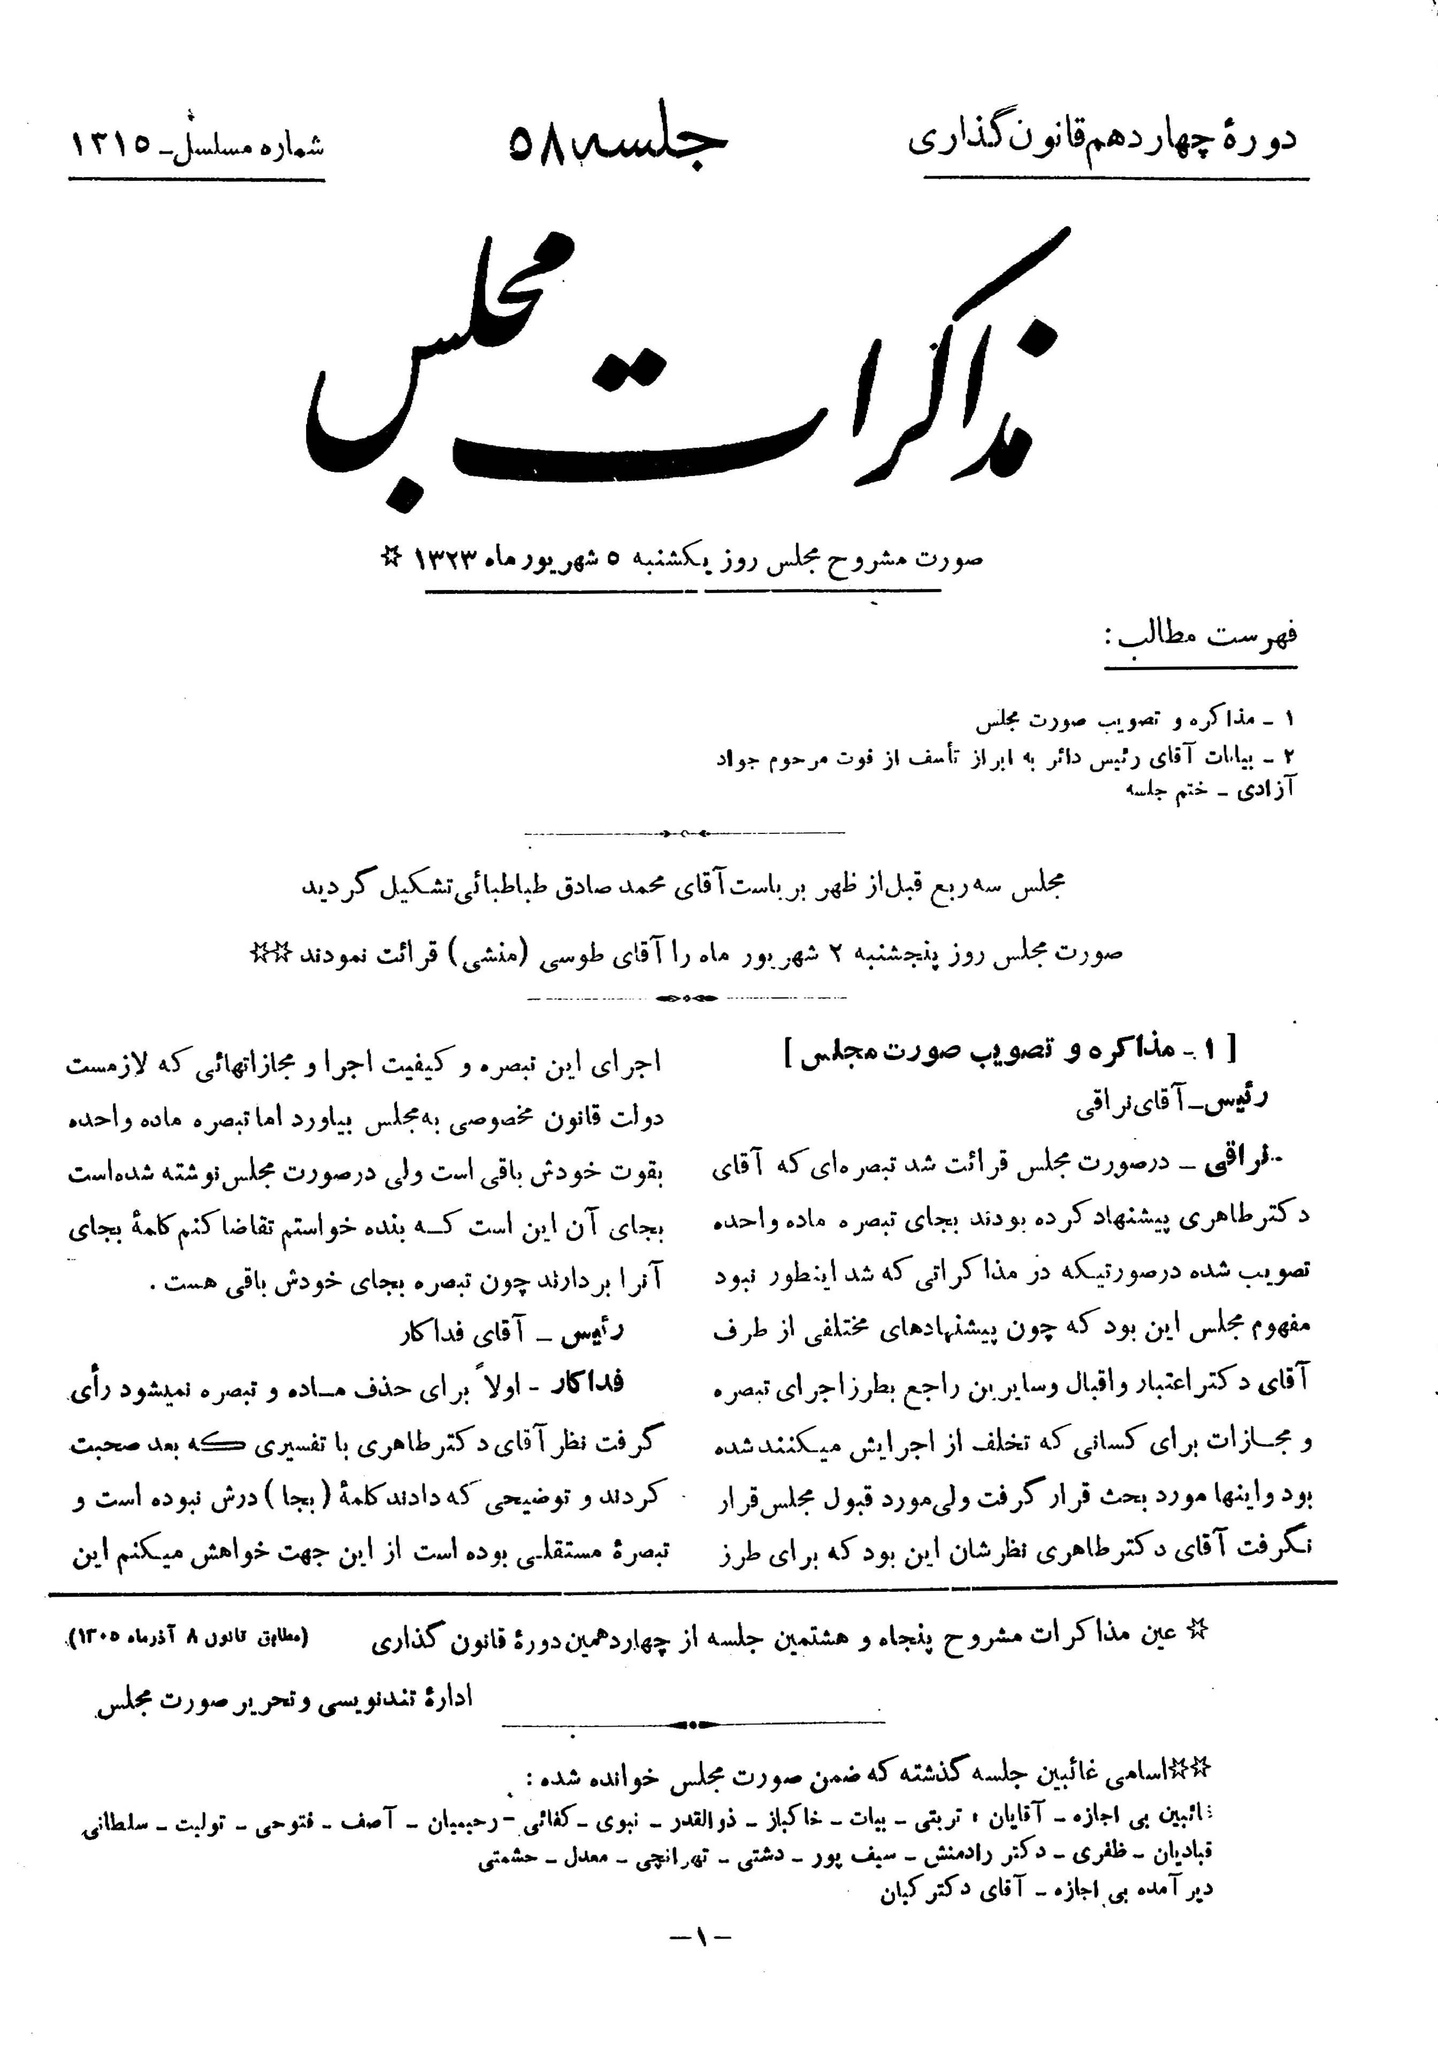 دورهٔ چهاردهم قانون‌گذاری
جلسه ۵۸
شماره مسلسل - ۱۳۱۵
مذاکرات مجلس
صورت مشروح مجلس روز یکشنبه ۵ شهریور ماه ۱۳۲۳ ☆
فهرست مطالب :
۱ - مذاکره و تصویب صورت مجلس
۲ - بیانات آقای رئیس دائر به ابراز تأسف از فوت مرحوم جواد
آزادی - ختم جلسه
مجلس سه ربع قبل از ظهر بریاست آقای محمد صادق طباطبائی تشکیل گردید
صورت مجلس روز پنجشنبه ۲ شهریور ماه را آقای طوسی (منشی) قرائت نمودند ☆☆
[ ۱ - مذاکره و تصویب صورت مجلس ]
رئیس - آقای نراقی
نراقی - درصورت مجلس قرائت شد تبصره‌ای که آقای
دکتر طاهری پیشنهاد کرده بودند بجای تبصره ماده واحده
تصویب شده درصورتیکه در مذاکراتی که شد اینطور نبود
مفهوم مجلس این بود که چون پیشنهادهای مختلفی از طرف
آقای دکتر اعتبار و اقبال و سایرین راجع بطرز اجرای تبصره
و مجازات برای کسانی که تخلف از اجرایش میکنند شده
بود و اینها مورد بحث قرار گرفت ولی مورد قبول مجلس قرار
نگرفت آقای دکتر طاهری نظرشان این بود که برای طرز
اجرای این تبصره و کیفیت اجرا و مجازاتهائی که لازمست
دولت قانون مخصوصی به مجلس بیاورد اما تبصره ماده واحده
بقوت خودش باقی است ولی درصورت مجلس نوشته شده‌است
بجای آن این است که بنده خواستم تقاضا کنم کلمهٔ بجای
آنرا بردارند چون تبصره بجای خودش باقی هست .
رئیس - آقای فداکار
فداکار - اولاً برای حذف ماده و تبصره نمیشود رأی
گرفت نظر آقای دکتر طاهری با تفسیری که بعد صحبت
کردند و توضیحی که دادند کلمهٔ (بجا) درش نبوده است و
تبصرهٔ مستقلی بوده است از این جهت خواهش میکنم این
☆ عین مذاکرات مشروح پنجاه و هشتمین جلسه از چهاردهمین دورهٔ قانون گذاری (مطابق قانون ۸ آذرماه ۱۳۰۵)
ادارهٔ تندنویسی و تحریر صورت مجلس
☆☆ اسامی غائبین جلسه گذشته که ضمن صورت مجلس خوانده شده :
غائبین بی اجازه - آقایان : تربتی - بیات - خاکباز - ذوالقدر - نبوی - کفائی - رحیمیان - آصف - فتوحی - تولیت - سلطانی
قبادیان - ظفری - دکتر رادمنش - سیف پور - دشتی - تهرانچی - معدل - حشمتی
دیر آمده بی اجازه - آقای دکتر کیان
-۱-